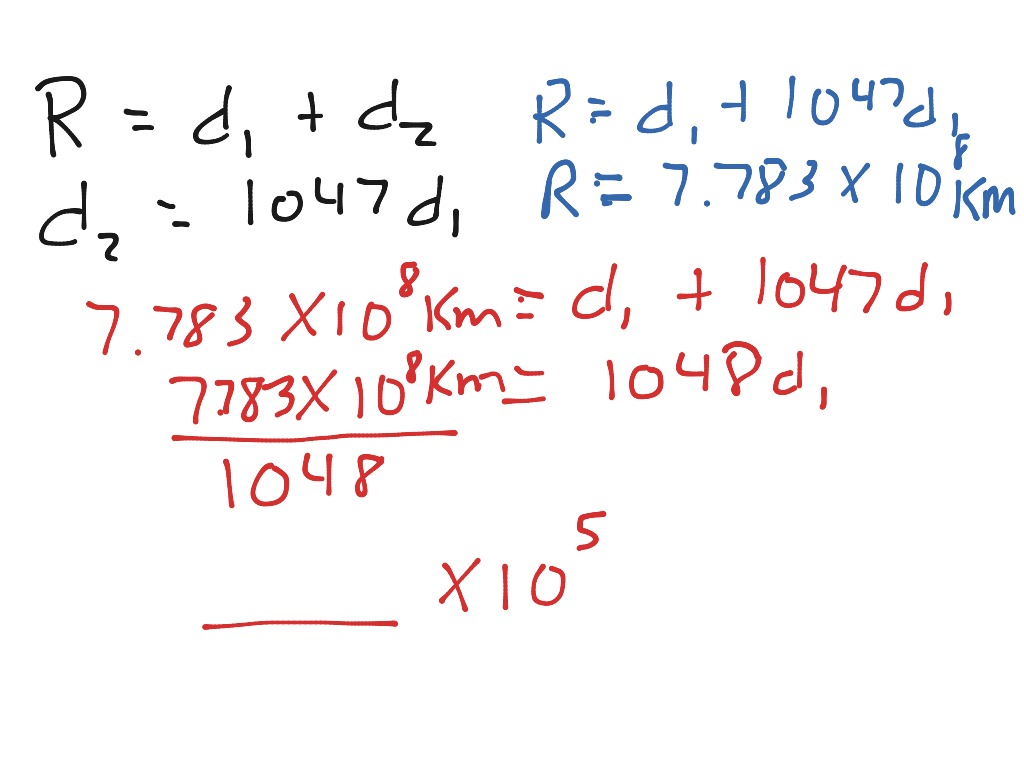 R = d₁ + d₂
d₂ = 1047d₁
R = d₁ + 1047d₁
R = 7.783 x 10⁸ Km
7.783 X 10⁸ Km = d₁ + 1047d₁
7.783 X 10⁸ Km = 1048d₁
1048
____ X 10⁵